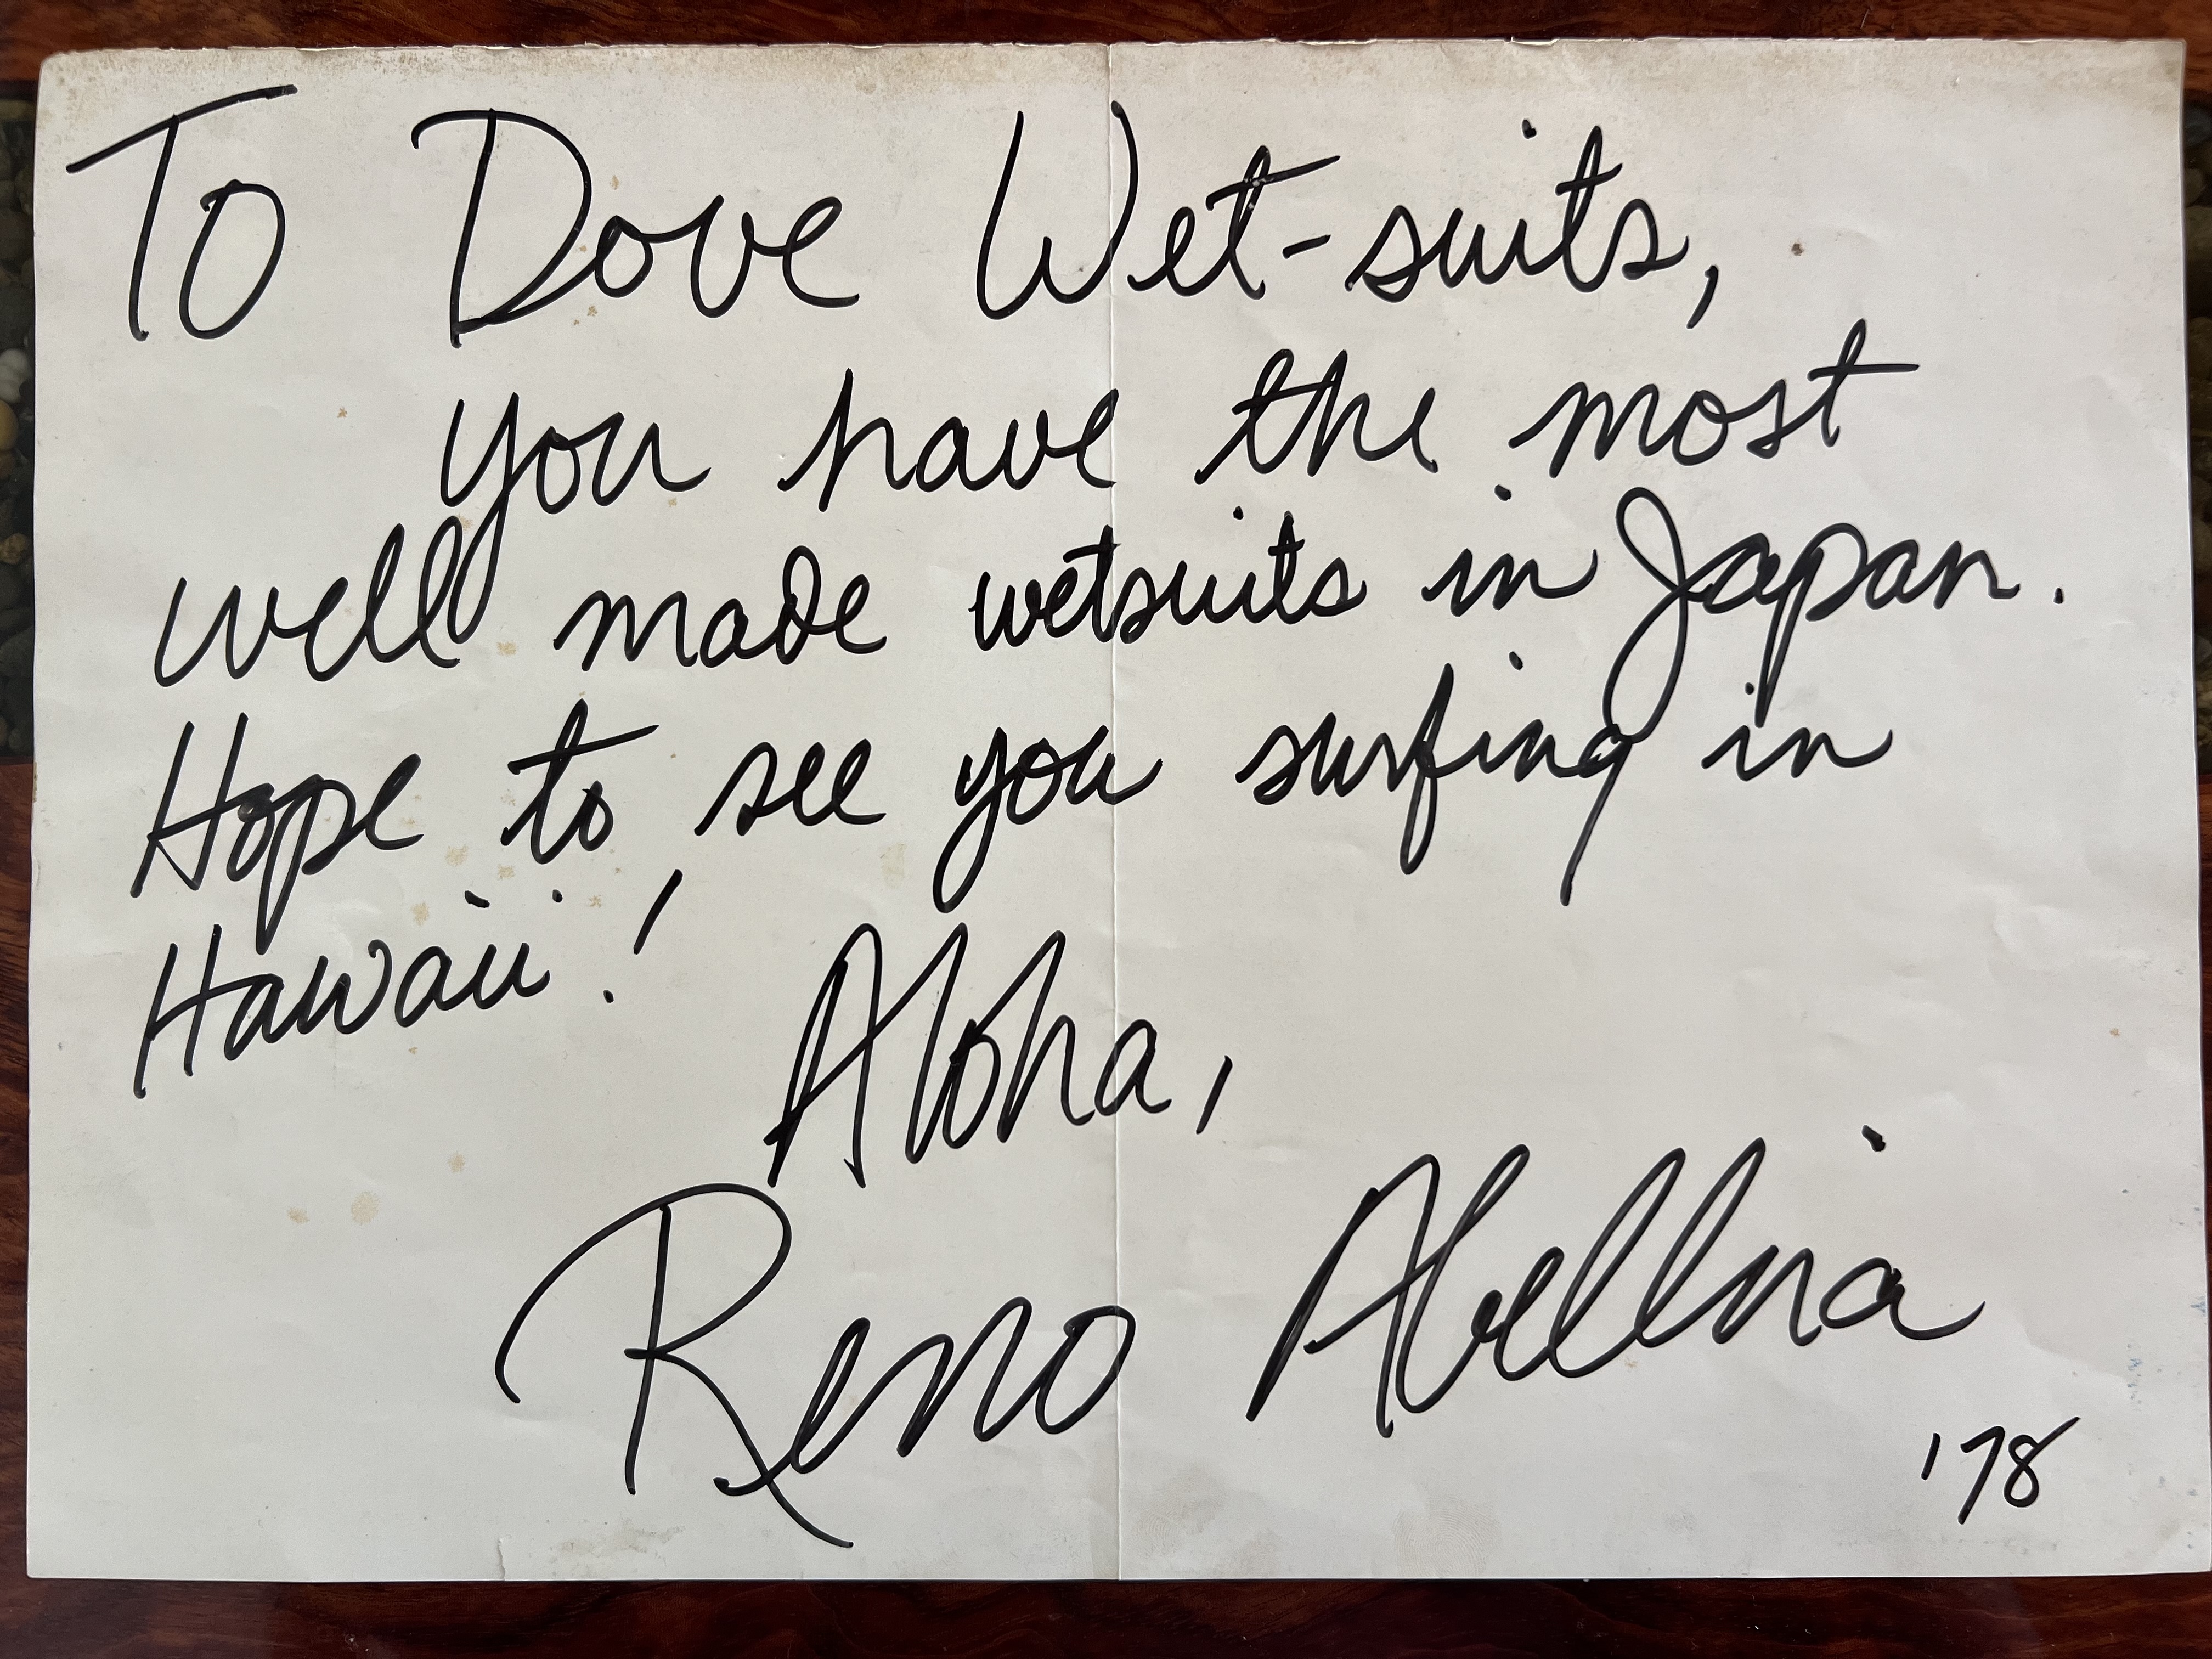 To Dove Wet-suits,
you have the most
well made wetsuits in Japan.
Hope to see you surfing in
Hawaii!
Aloha,
Reno Abellira
'78